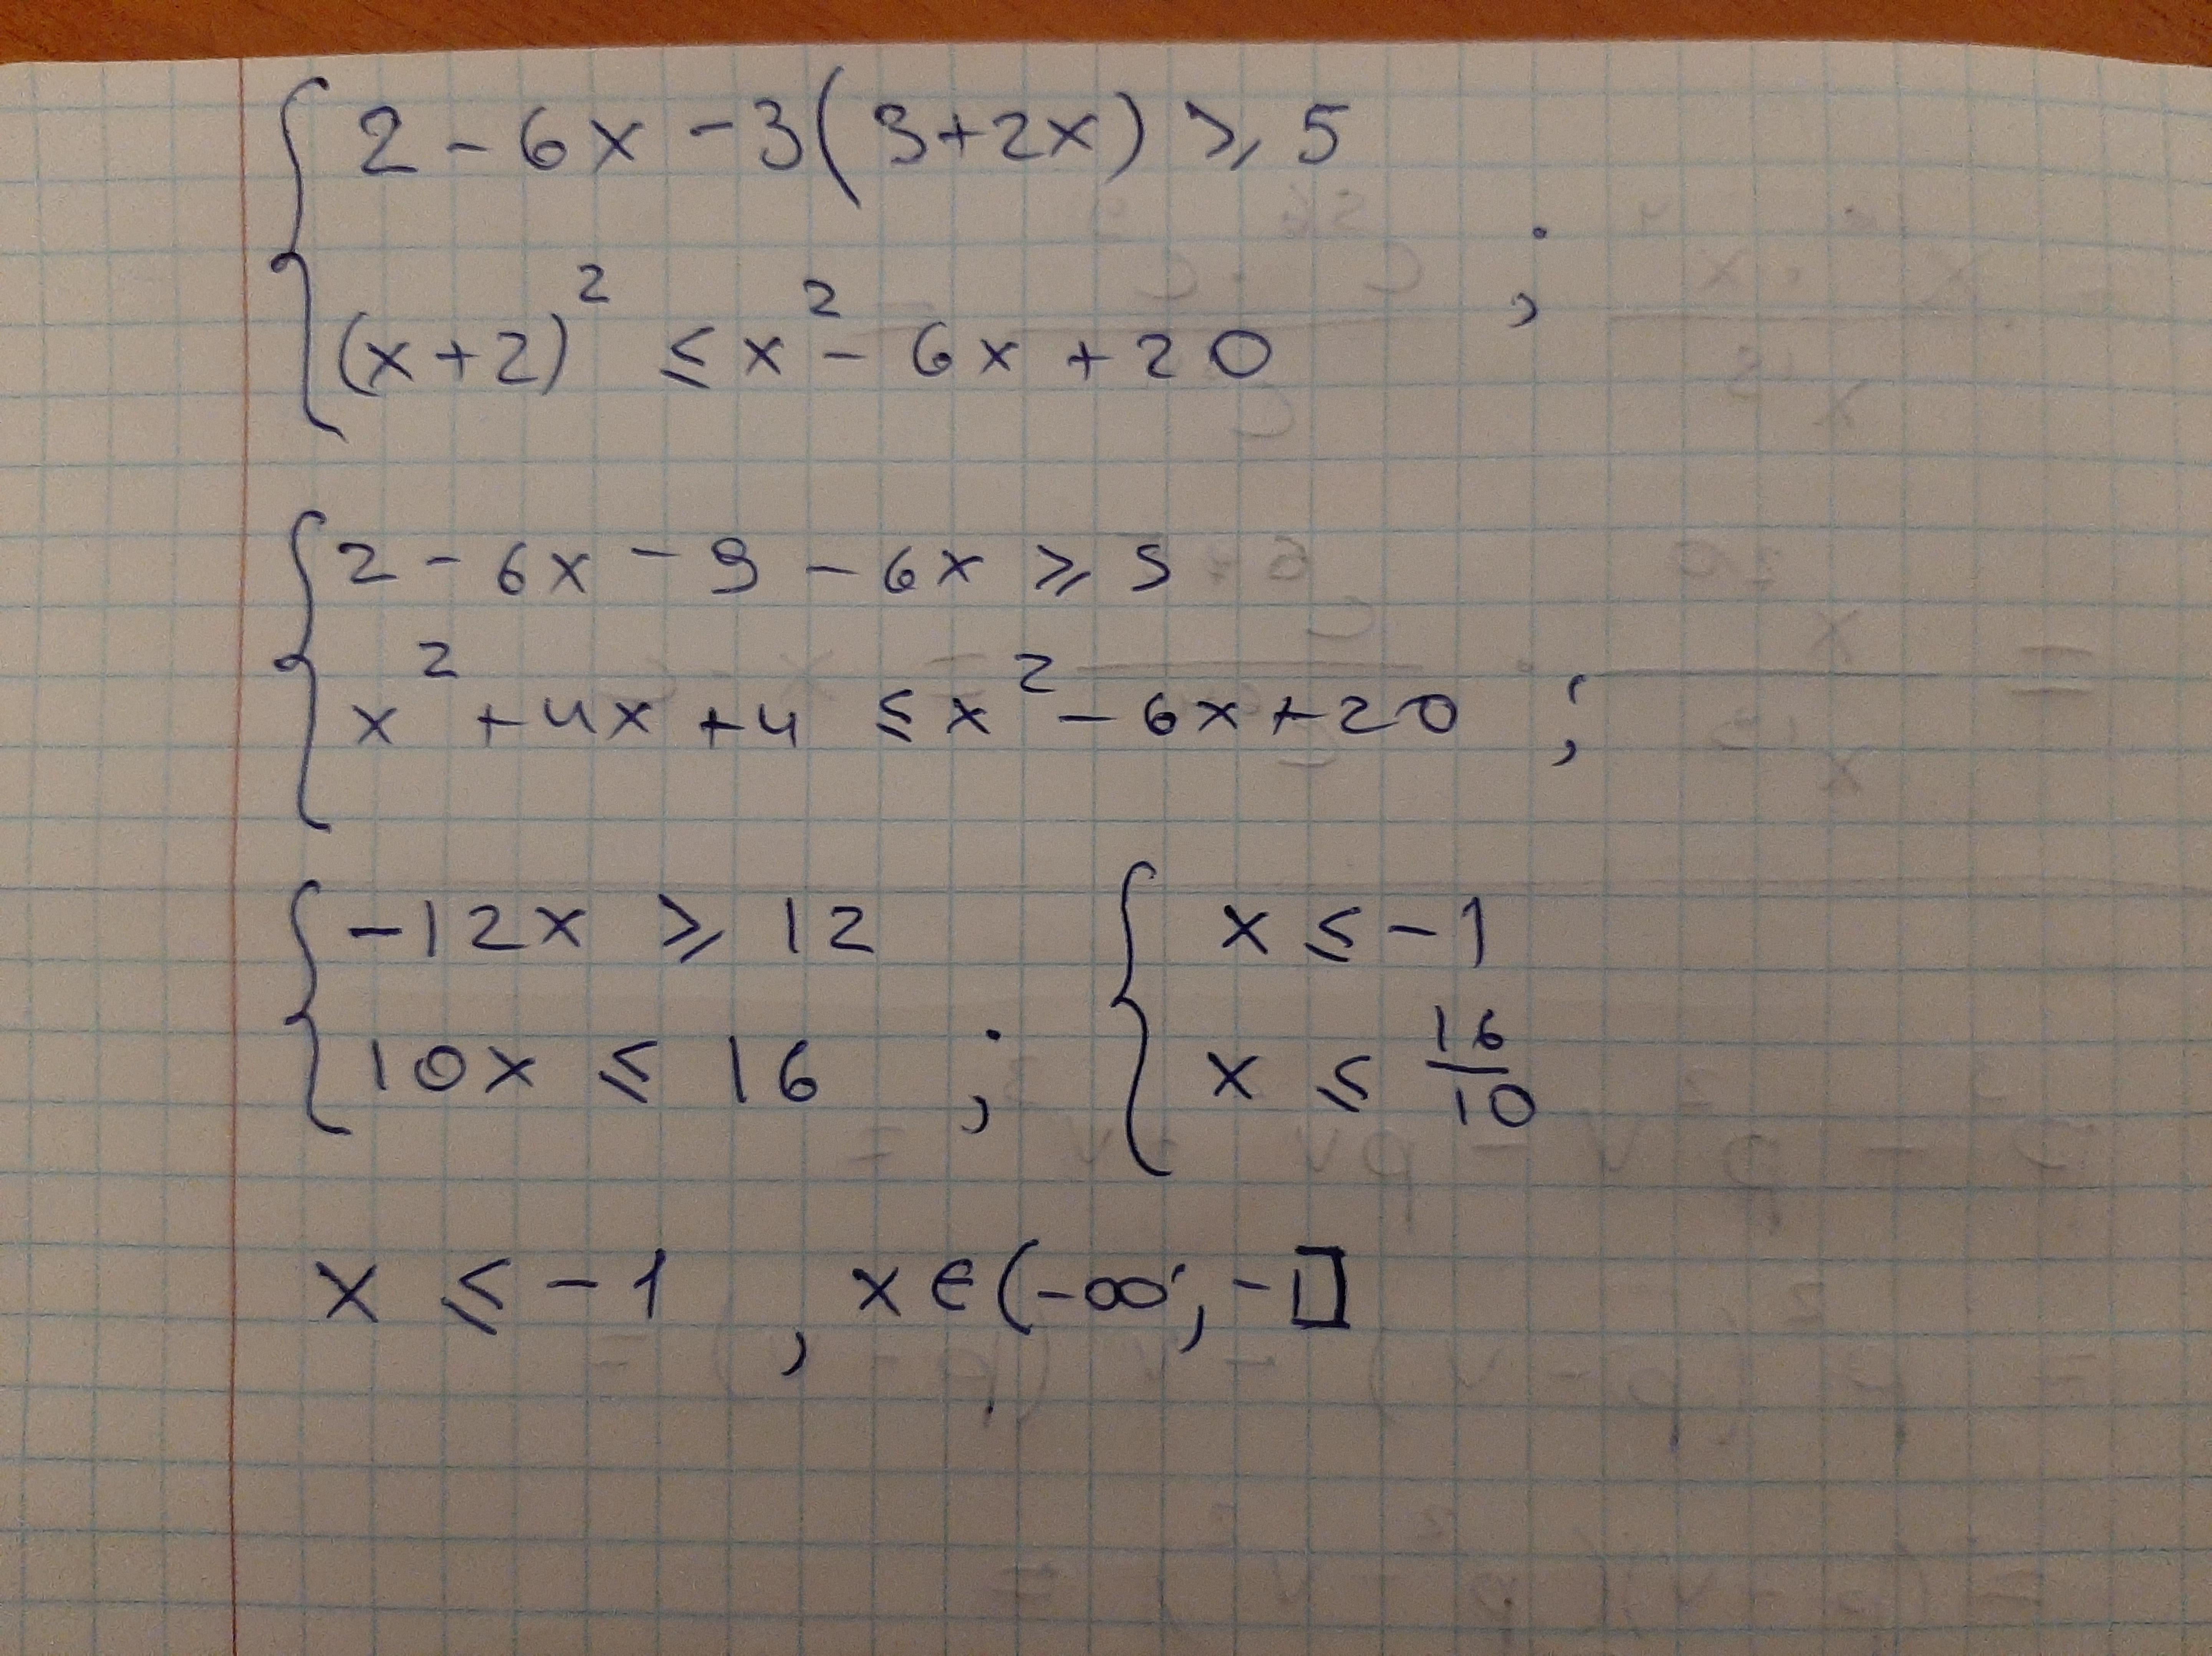 { 2 - 6x - 3(3+2x) ⩾ 5
(x+2)² ≤ x² - 6x + 20 ;
{ 2 - 6x - 9 - 6x ⩾ 5
x² + 4x + 4 ≤ x² - 6x + 20 ;
{ -12x ⩾ 12
10x ≤ 16 ;
{ x ≤ -1
x ≤ 16/10
x ≤ -1 , x ∈ (-∞; -1]